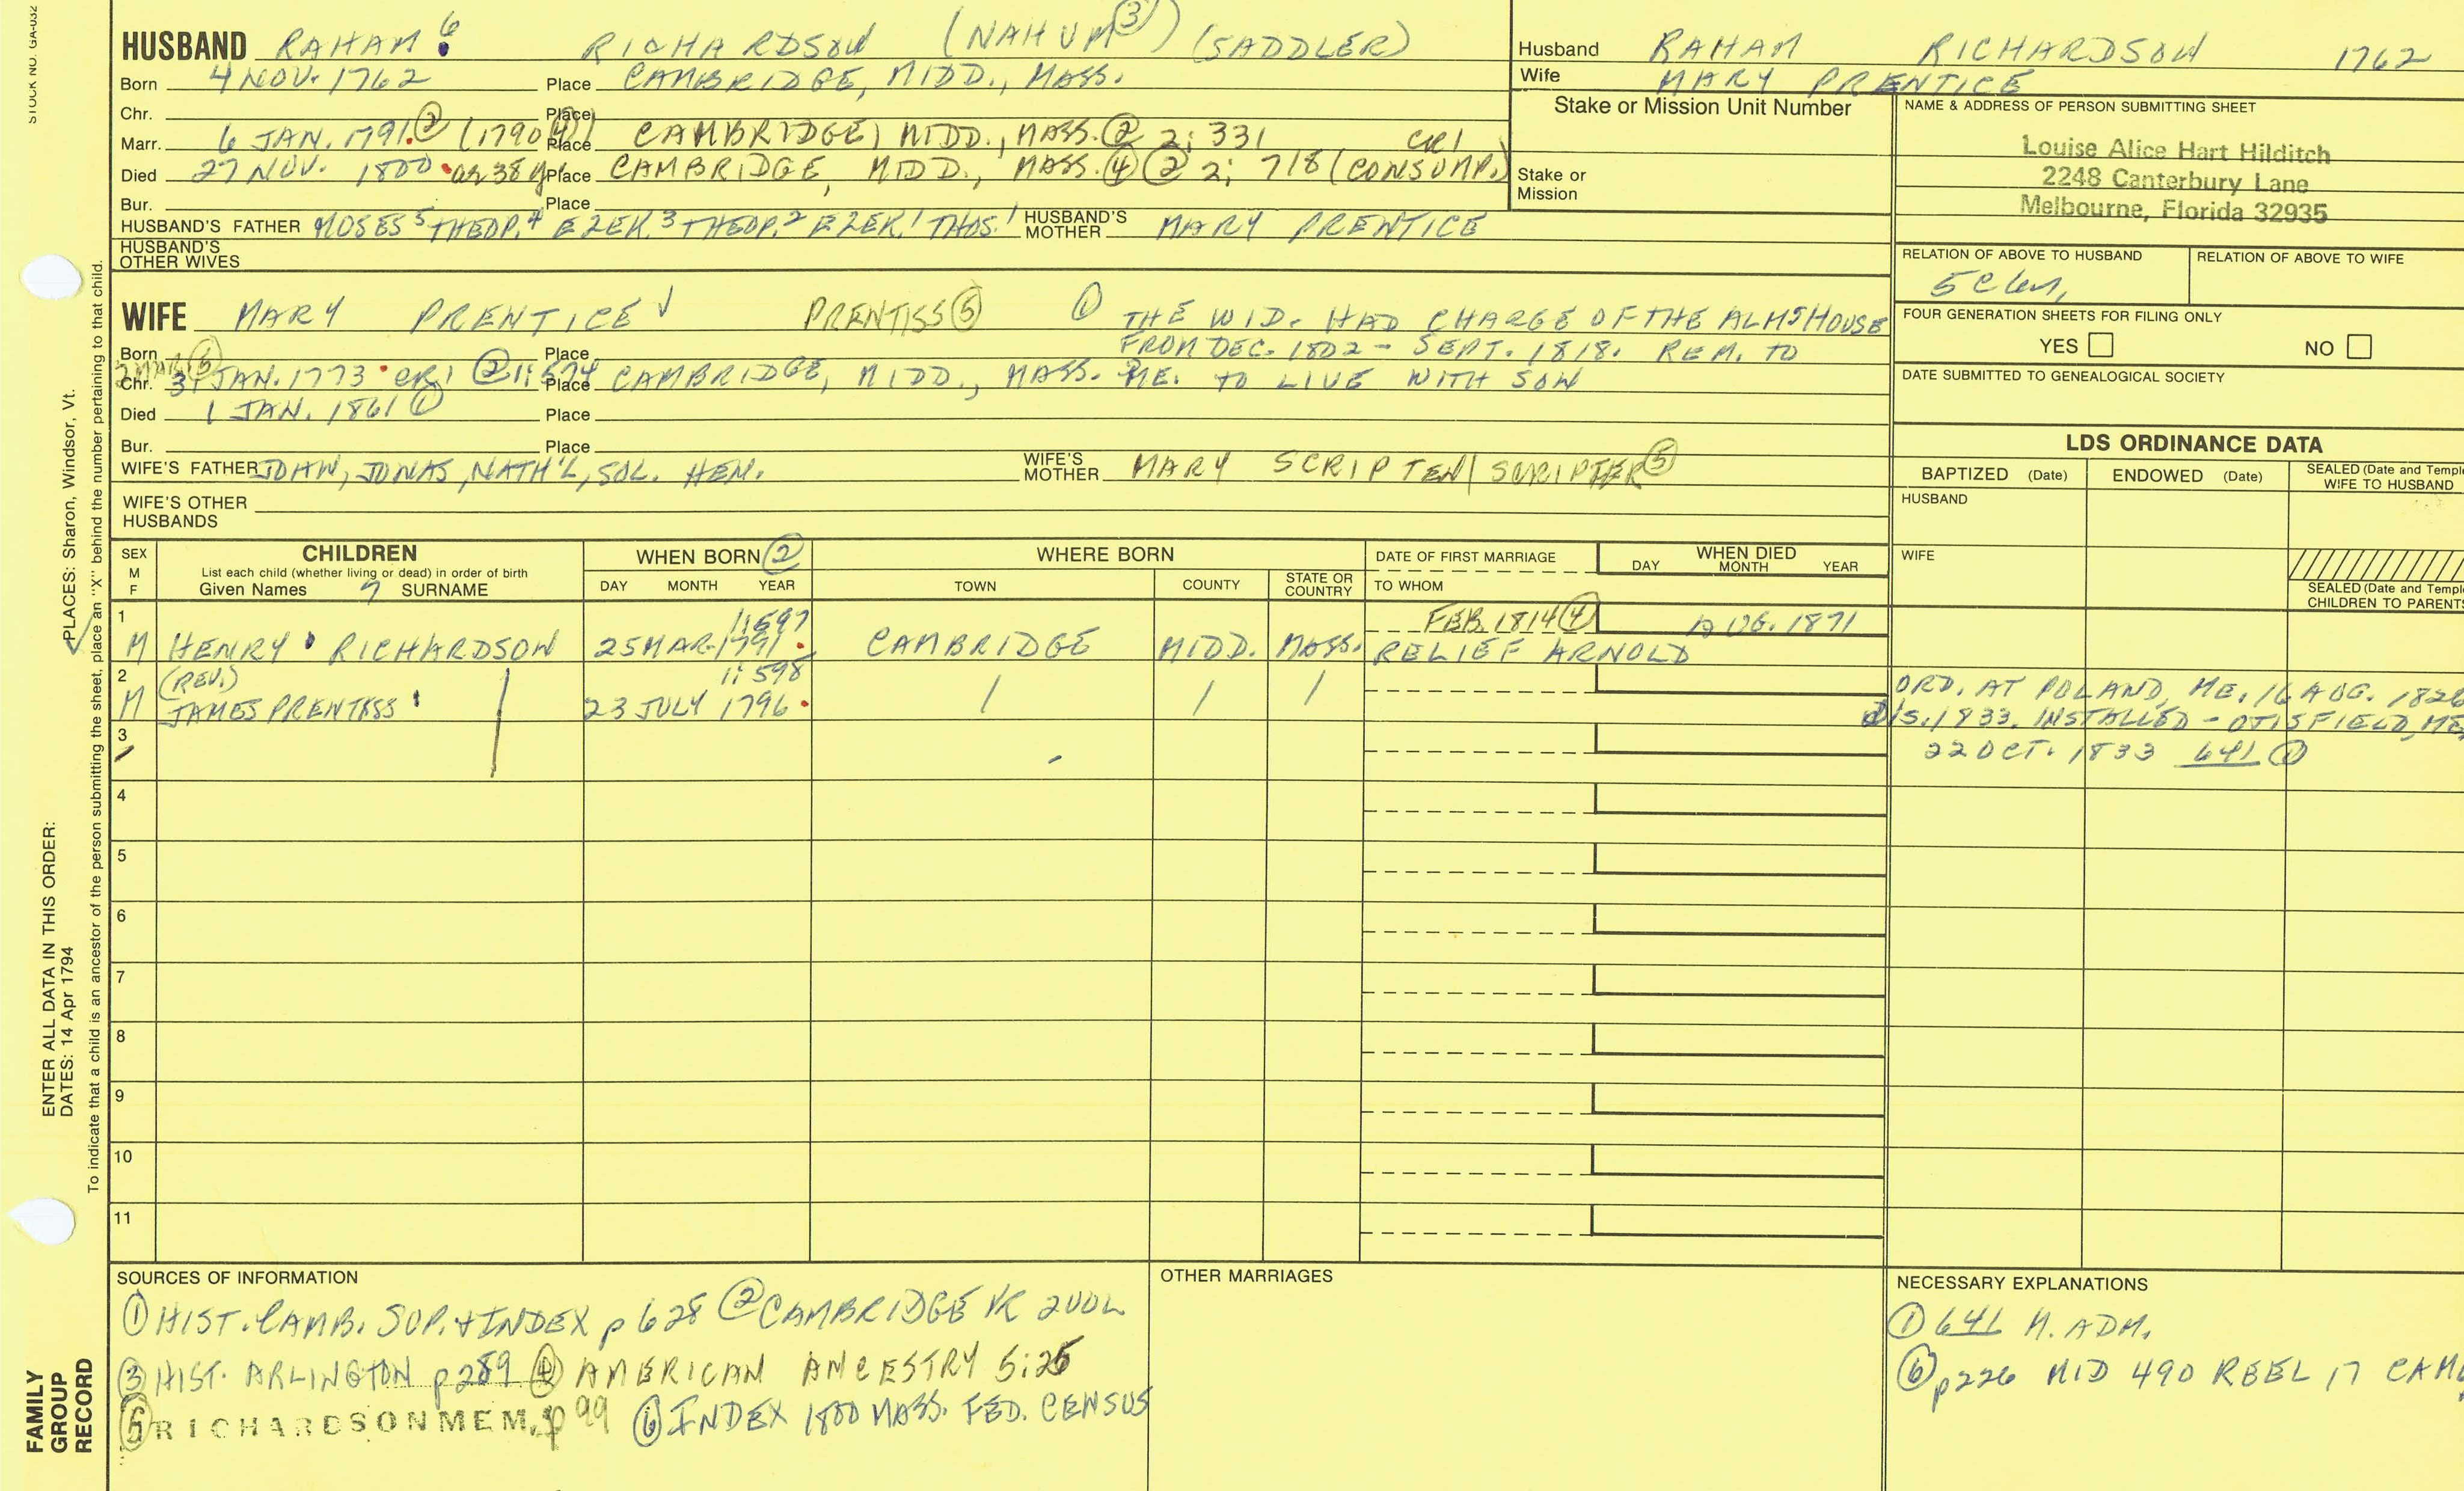 STOCK NO. GA-032
HUSBAND RAHAM 6 RICHARDSON (NAHUM ③) (SADDLER)
Born 4 NOV. 1762 Place CAMBRIDGE, MIDD., MASS.
Chr. Place
Marr. 6 JAN. 1791 ② (1790 ④) Place CAMBRIDGE, MIDD., MASS. ② 2: 331 CR1
Died 27 NOV. 1800 ae 38 y Place CAMBRIDGE, MIDD., MASS. ④ ② 2: 718 (CONSUMP.)
Bur. Place
HUSBAND'S FATHER MOSES 5 THEOP. 4 EZEK. 3 THEOP. 2 EZEK. 1 THOS. 1 HUSBAND'S MOTHER MARY PRENTICE
HUSBAND'S OTHER WIVES
Husband RAHAM RICHARDSON 1762
Wife MARY PRENTICE
Stake or Mission Unit Number
Stake or
Mission
NAME & ADDRESS OF PERSON SUBMITTING SHEET
Louise Alice Hart Hilditch
2248 Canterbury Lane
Melbourne, Florida 32935
RELATION OF ABOVE TO HUSBAND RELATION OF ABOVE TO WIFE
5C
FOUR GENERATION SHEETS FOR FILING ONLY
YES NO
DATE SUBMITTED TO GENEALOGICAL SOCIETY
WIFE MARY PRENTICE √ PRENTISS ⑤ ① THE WID. HAD CHARGE OF THE ALMSHOUSE
Born Place FROM DEC. 1802 - SEPT. 1818. REM. TO
Chr. 31 JAN. 1773 CR1 ② 1: 574 Place CAMBRIDGE, MIDD., MASS. ME. TO LIVE WITH SON
Died 1 JAN. 1861 ① Place
Bur. Place
WIFE'S FATHER JOHN, JONAS, NATH'L, SOL. HEN. WIFE'S MOTHER MARY SCRIPTEN/SCRIPTER ⑤
WIFE'S OTHER HUSBANDS
LDS ORDINANCE DATA
BAPTIZED (Date) ENDOWED (Date) SEALED (Date and Temple) WIFE TO HUSBAND
HUSBAND
WIFE
SEALED (Date and Temple) CHILDREN TO PARENTS
SEX M F CHILDREN WHEN BORN ② WHERE BORN DATE OF FIRST MARRIAGE WHEN DIED
List each child (whether living or dead) in order of birth
Given Names 7 SURNAME DAY MONTH YEAR TOWN COUNTY STATE OR COUNTRY TO WHOM DAY MONTH YEAR
1 1: 597 FEB. 1814 ④ AUG. 1871
M HENRY RICHARDSON 25 MAR. 1791 CAMBRIDGE MIDD. MASS. RELIEF ARNOLD
2 (REV.) 1: 598
M JAMES PRENTISS 23 JULY 1796 / / /
ORD. AT POLAND, ME. 16 AUG. 1826
DIS. 1833. INSTALLED - OTISFIELD, ME.
22 OCT. 1833 641 ①
3
4
5
6
7
8
9
10
11
SOURCES OF INFORMATION
① HIST. CAMB. SUP. & INDEX p 628 ② CAMBRIDGE VR 2VOL
③ HIST. ARLINGTON p 289 ④ AMERICAN ANCESTRY 5:25
⑤ RICHARDSON MEM. p 99 ⑥ INDEX 1800 MASS. FED. CENSUS
OTHER MARRIAGES
NECESSARY EXPLANATIONS
① 641 H. ADM.
⑥ p226 MID 490 REEL 17 CAM
PLACES: Sharon, Windsor, Vt.
ENTER ALL DATA IN THIS ORDER:
DATES: 14 Apr 1794
To indicate that a child is an ancestor of the person submitting the sheet, place an "X" behind the number pertaining to that child.
FAMILY
GROUP
RECORD